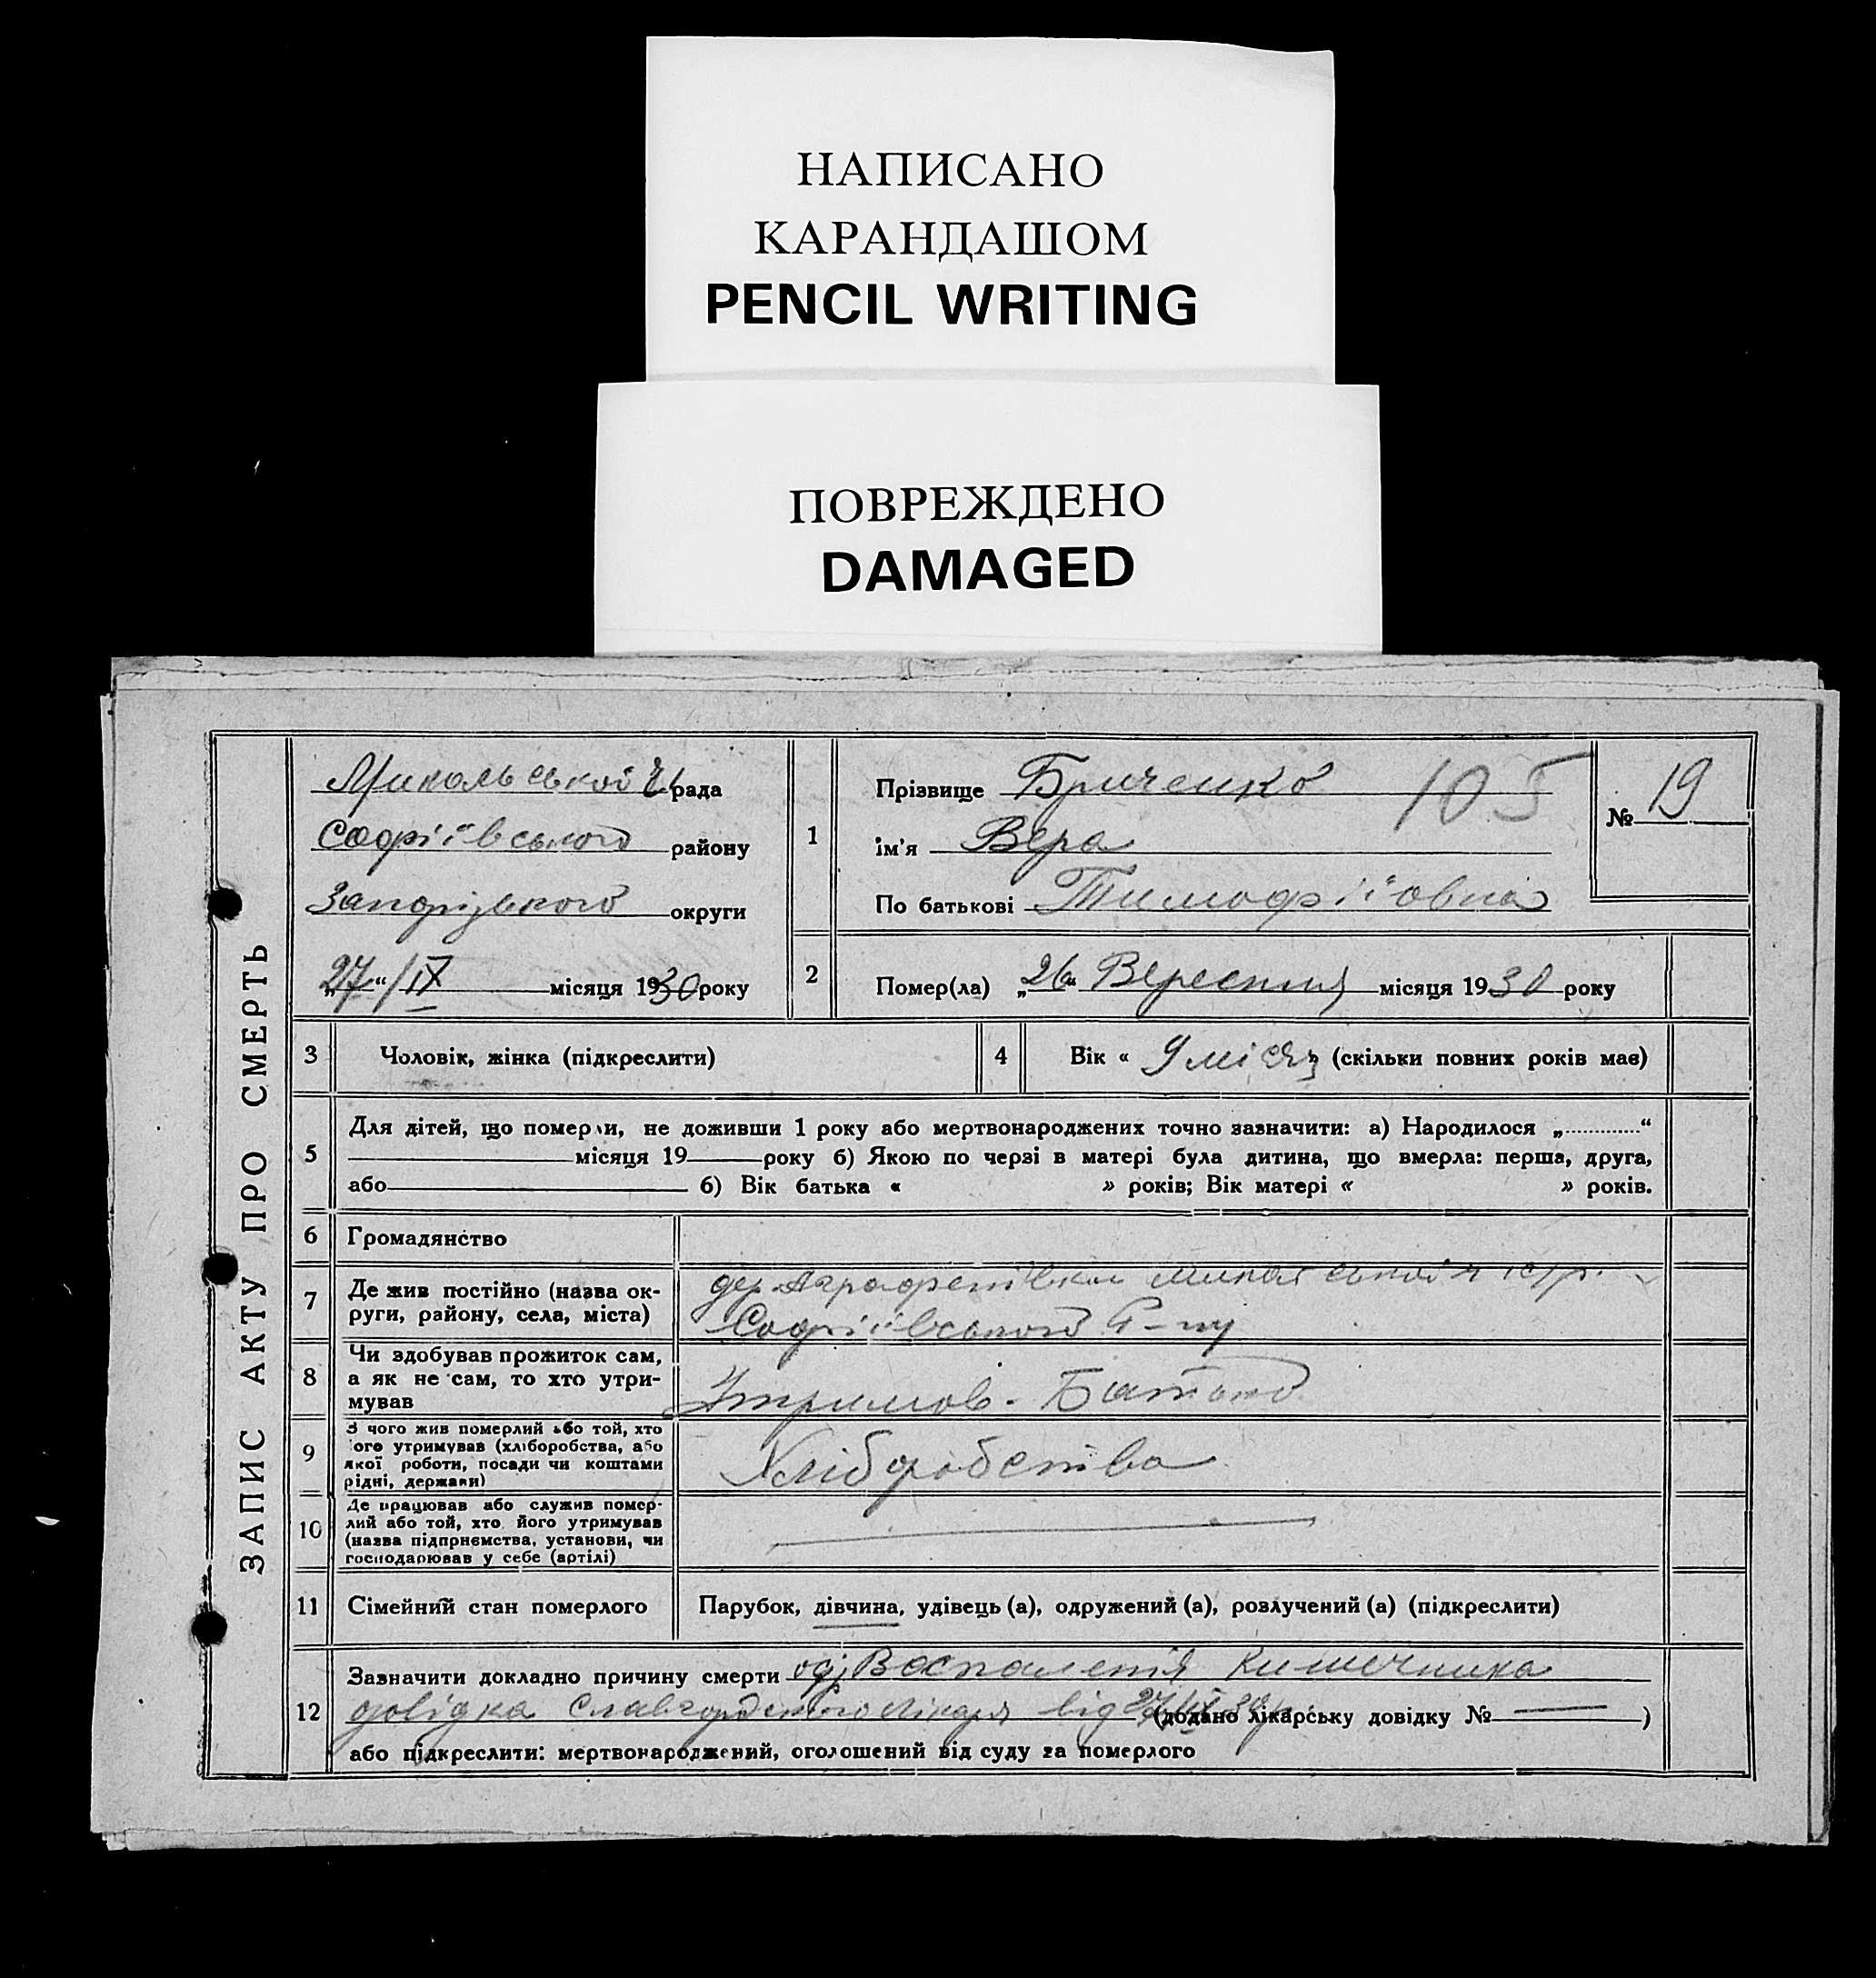 НАПИСАНО
КАРАНДАШОМ
PENCIL WRITING
ПОВРЕЖДЕНО
DAMAGED
ЗАПИС АКТУ ПРО СМЕРТЬ
Микольської рада
Софіївського району
Запорізького округи
„27“/IX місяця 1930 року
1 Прізвище Бриченко 105
ім'я Вера
По батькові Тимофіївна
№ 19
2 Помер(ла) „26“ Вересня місяця 1930 року
3 Чоловік, жінка (підкреслити)
4 Вік « 9 місяц » (скільки повних років має)
5 Для дітей, що померли, не доживши 1 року або мертвонароджених точно зазначити: а) Народилося „ “
місяця 19 року б) Якою по черзі в матері була дитина, що вмерла: перша, друга,
або б) Вік батька « » років; Вік матері « » років.
6 Громадянство
7 Де жив постійно (назва ок-
руги, району, села, міста)
дер Аграфенівка
Софіївського Р-ну
8 Чи здобував прожиток сам,
а як не сам, то хто утри-
мував
Утримов. Батько
9 З чого жив померлий або той, хто
його утримував (хліборобства, або
якої роботи, посади чи коштами
рідні, держави)
Хліборобства
10 Де працював або служив помер-
лий або той, хто його утримував
(назва підприємства, установи, чи
господарював у себе (артілі)
11 Сімейний стан померлого
Парубок, дівчина, удівець (а), одружений (а), розлучений (а) (підкреслити)
12 Зазначити докладно причину смерти од Воспаления кишечника
довідка Славгородського лікаря від 27/IX 30 р (додано лікарську довідку № )
або підкреслити: мертвонароджений, оголошений від суду за померлого